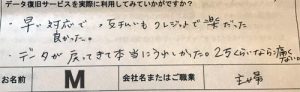 データ復旧サービスを実際に利用してみていかがですか?
・早い対応で、支払いもクレジットで楽だった
良かった。
・データが戻ってきて本当にうれしかった。2万くらいなら痛く
ない。
お名前 M 会社名またはご職業 主婦